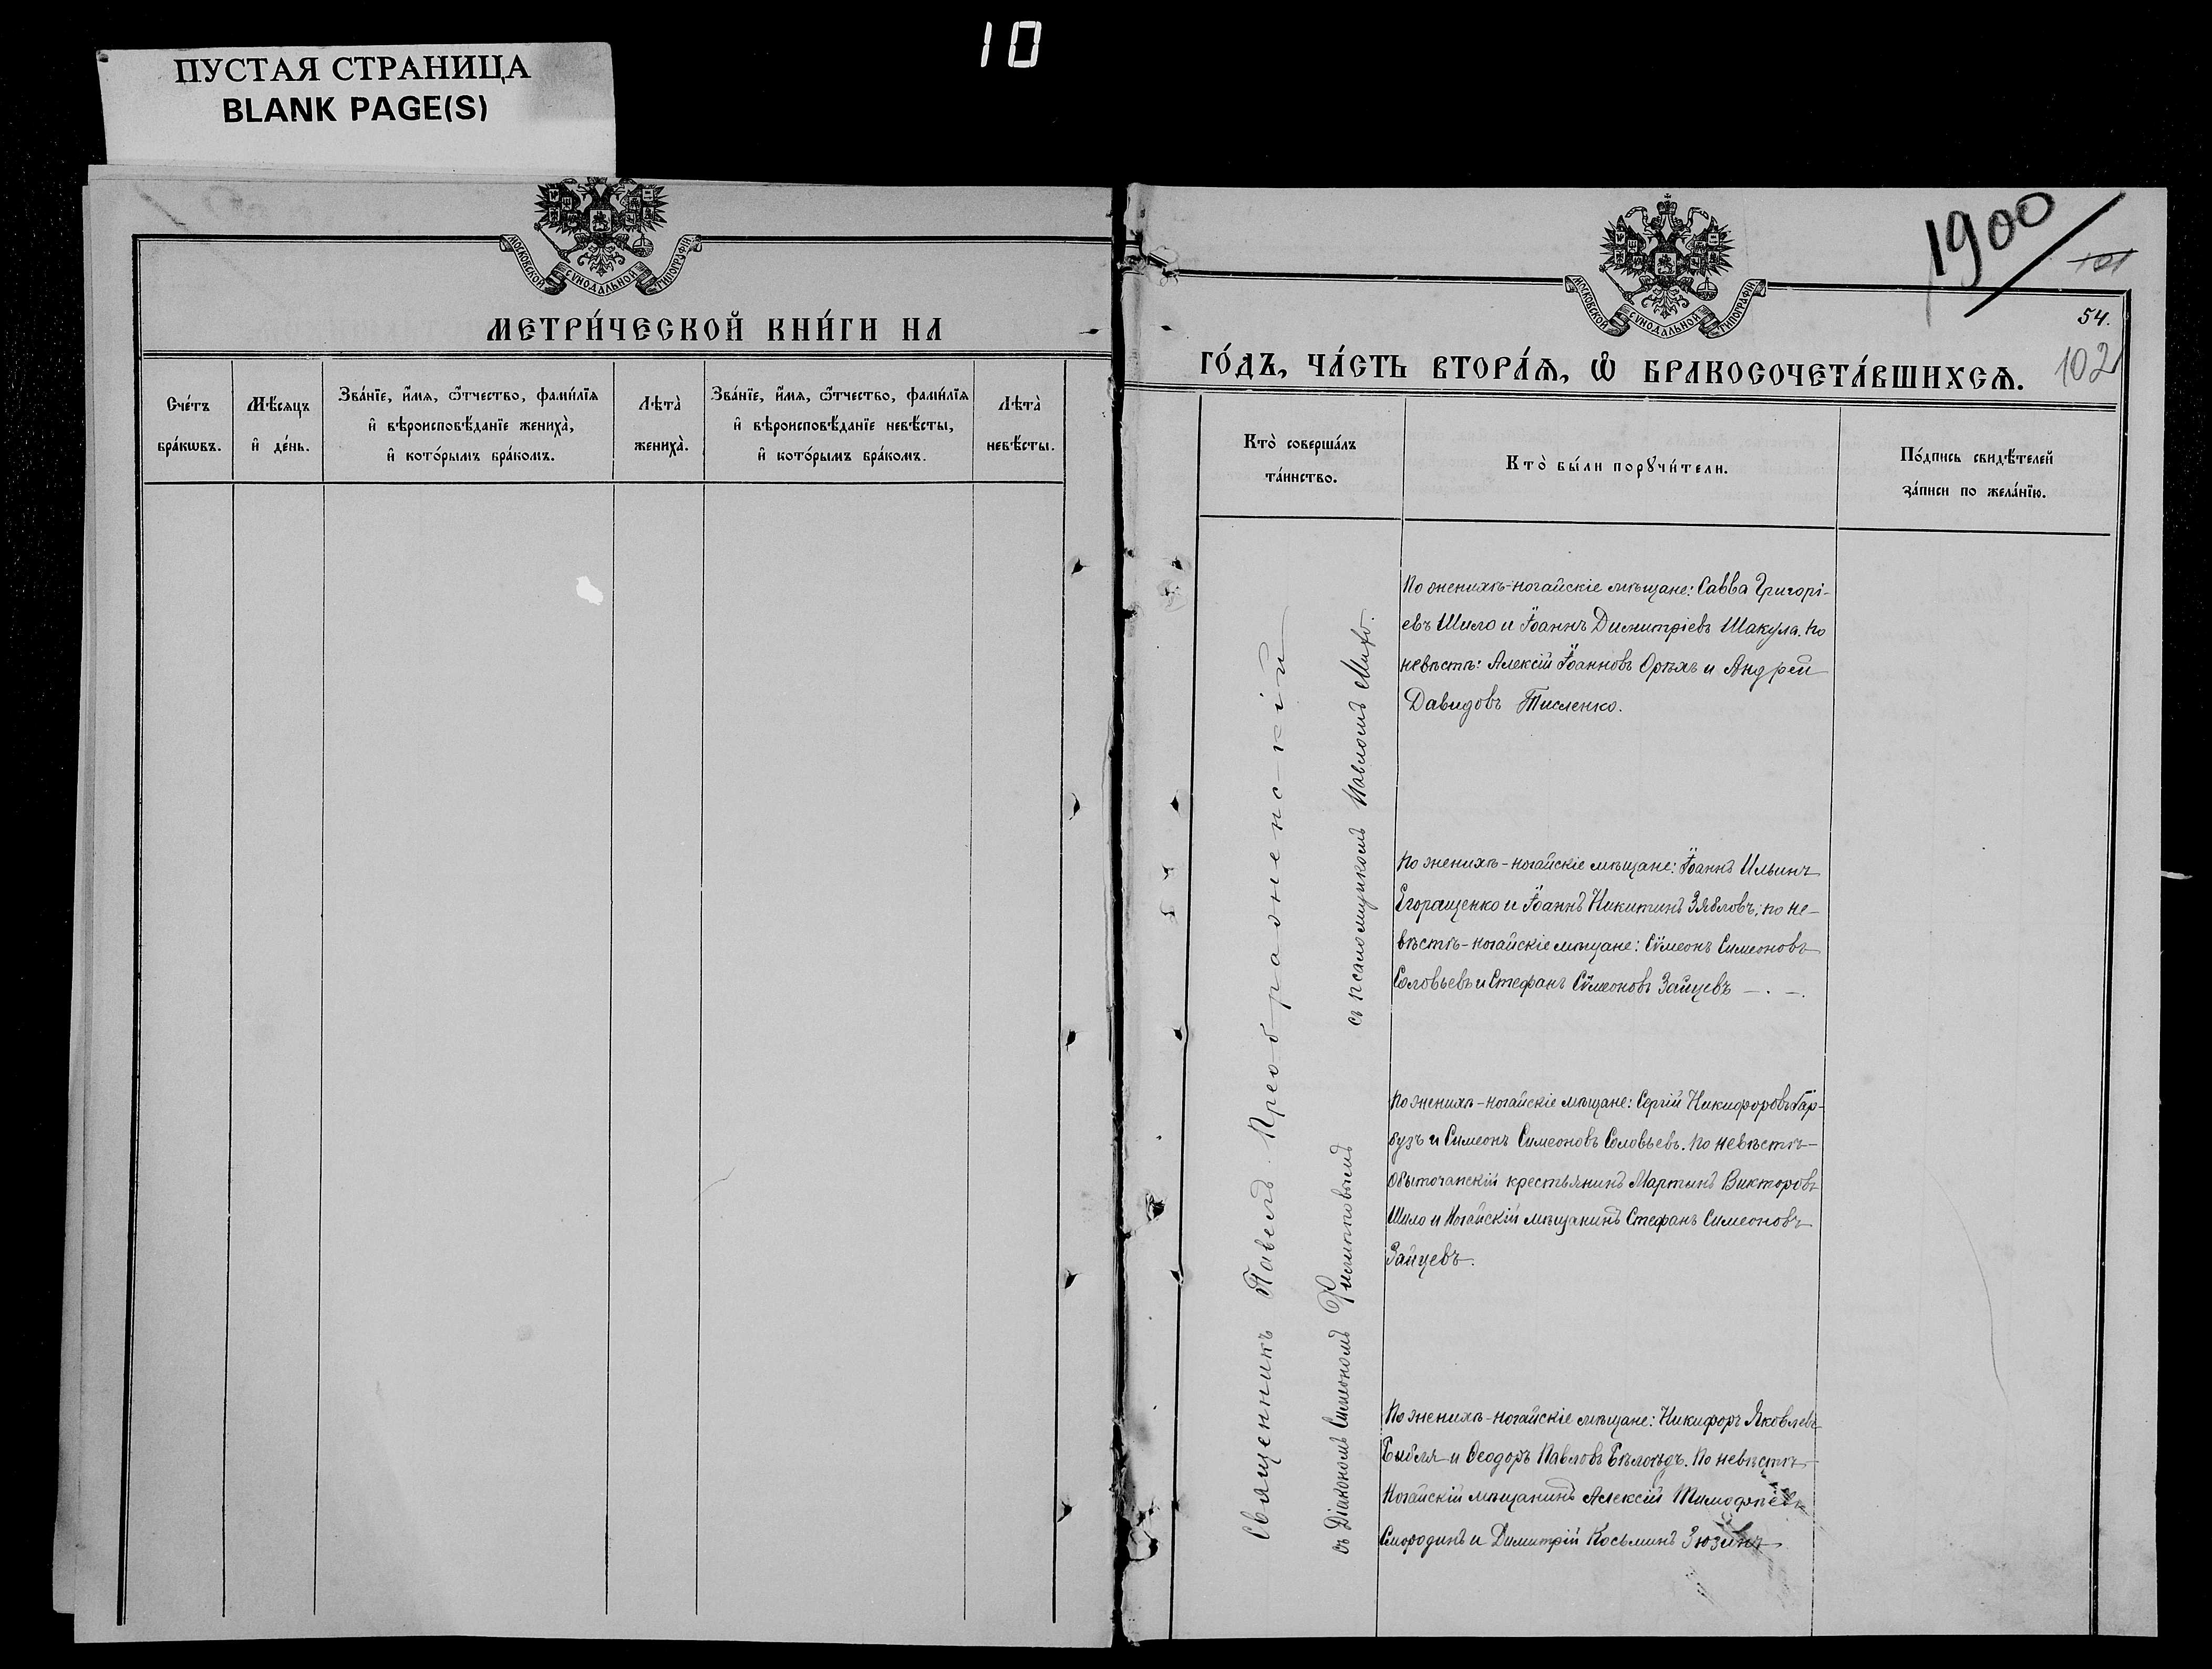 10
ПУСТАЯ СТРАНИЦА
BLANK PAGE(S)
МОСКОВСКОЙ СѴНОДАЛЬНОЙ ТИПОГРАФІИ
МЕТРИ́ЧЕСКОЙ КНИ́ГИ НА
Сче́тъ
бра́кѡвъ.
Мѣ́сяцъ
и҆ де́нь.
Зва́нїе, и҆́мѧ, ѻ҆́тчество, фами́лїѧ
и҆ вѣроисповѣ́данїе жениха̀,
и҆ кото́рымъ бра́комъ.
Лѣта̀
жениха̀.
Зва́нїе, и҆́мѧ, ѻ҆́тчество, фами́лїѧ
и҆ вѣроисповѣ́данїе невѣ́сты,
и҆ кото́рымъ бра́комъ.
Лѣта̀
невѣ́сты.
МОСКОВСКОЙ СѴНОДАЛЬНОЙ ТИПОГРАФІИ
1900
101
54.
102
ГО́ДЪ, ЧА́СТЬ ВТОРА́Ѧ, Ѡ҆ БРАКОСОЧЕТА́ВШИХСѦ.
Кто̀ соверша́лъ
та́инство.
Кто̀ бы́ли порꙋчи́тели.
По́дпись свидѣ́телей
за́писи по жела́нїю.
Священникъ Павелъ Преображенскій
съ Діакономъ Симеономъ Филипповымъ
съ псаломщикомъ Павломъ
По женихѣ-ногайскіе мѣщане: Савва Григорі-
евъ Шило и Іоаннъ Димитріевъ Шакула. По
невѣстѣ: Алексій Іоанновъ Орѣхъ и Андрей
Давидовъ Тисленко.
По женихѣ-ногайскіе мѣщане: Іоаннъ Ильинъ
Егоращенко и Іоаннъ Никитинъ Зябловъ; по не-
вѣстѣ-ногайскіе мѣщане: Сѵмеонъ Симеоновъ
Соловьевъ и Стефанъ Сѵмеоновъ Зайцевъ —.—.
По женихѣ-ногайскіе мѣщане: Сергій Никифоровъ Гар-
бузъ и Симеонъ Симеоновъ Соловьевъ. По невѣстѣ-
Обыточанскій крестьянинъ Мартинъ Викторовъ
Шило и Ногайскій мѣщанинъ Стефанъ Симеоновъ
Зайцевъ.
По женихѣ-ногайскіе мѣщане: Никифоръ Яковлевъ
Библя и Ѳеодоръ Павловъ Бѣлоѣдъ. По невѣстѣ-
Ногайскій мѣщанинъ Алексій Тимофѣевъ
Смородинъ и Димитрій Косьминъ Зюзинъ